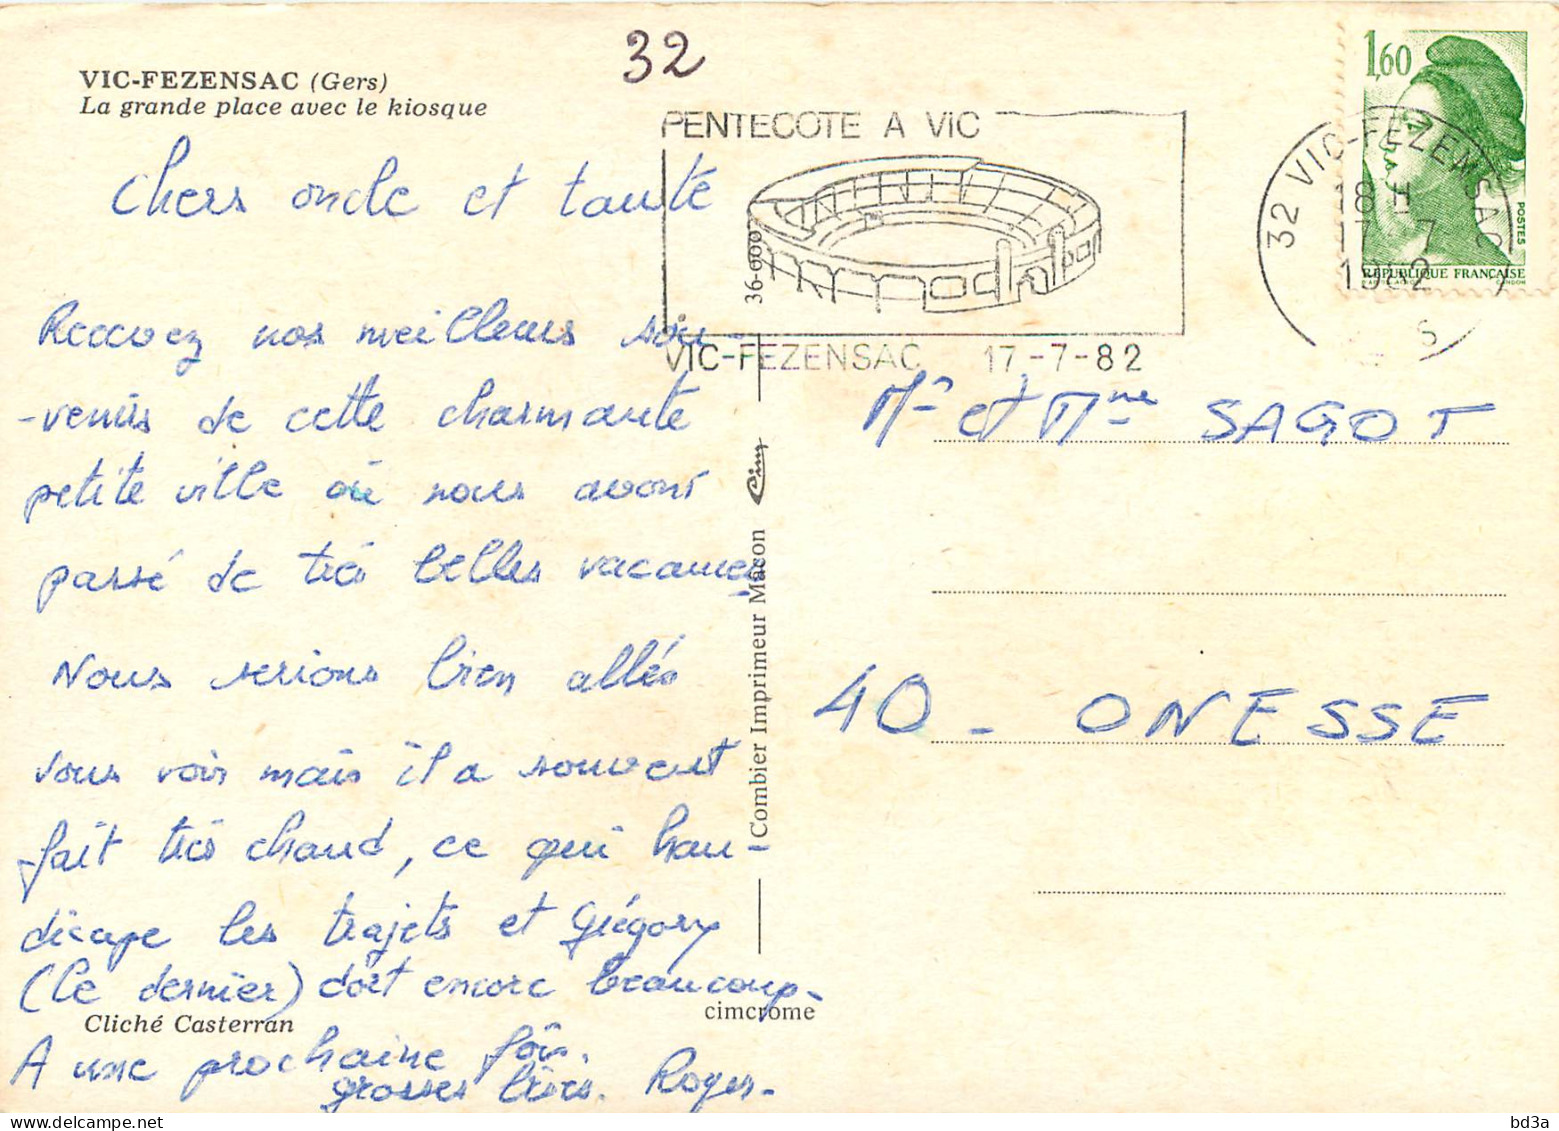 VIC-FEZENSAC (Gers)
La grande place avec le kiosque
32
PENTECOTE A VIC
VIC-FEZENSAC 17-7-82
32 VIC-FEZENSAC
18 H
17-7
1982
1,60
POSTES
RÉPUBLIQUE FRANÇAISE
GANDON
Chers oncle et tante
Recevez nos meilleurs sou-
-venirs de cette charmante
petite ville où nous avons
passé de très belles vacances
Nous serions bien allés
vous voir mais il a souvent
fait très chaud, ce qui han-
dicape les trajets et Grégory
(le dernier) dort encore beaucoup.
A une prochaine fois.
grosses bises. Roger.
Cliché Casterran
36-000
Cim
Combier Imprimeur Macon
cimcrome
Mr et Mme SAGOT
40 - ONESSE
bd3a